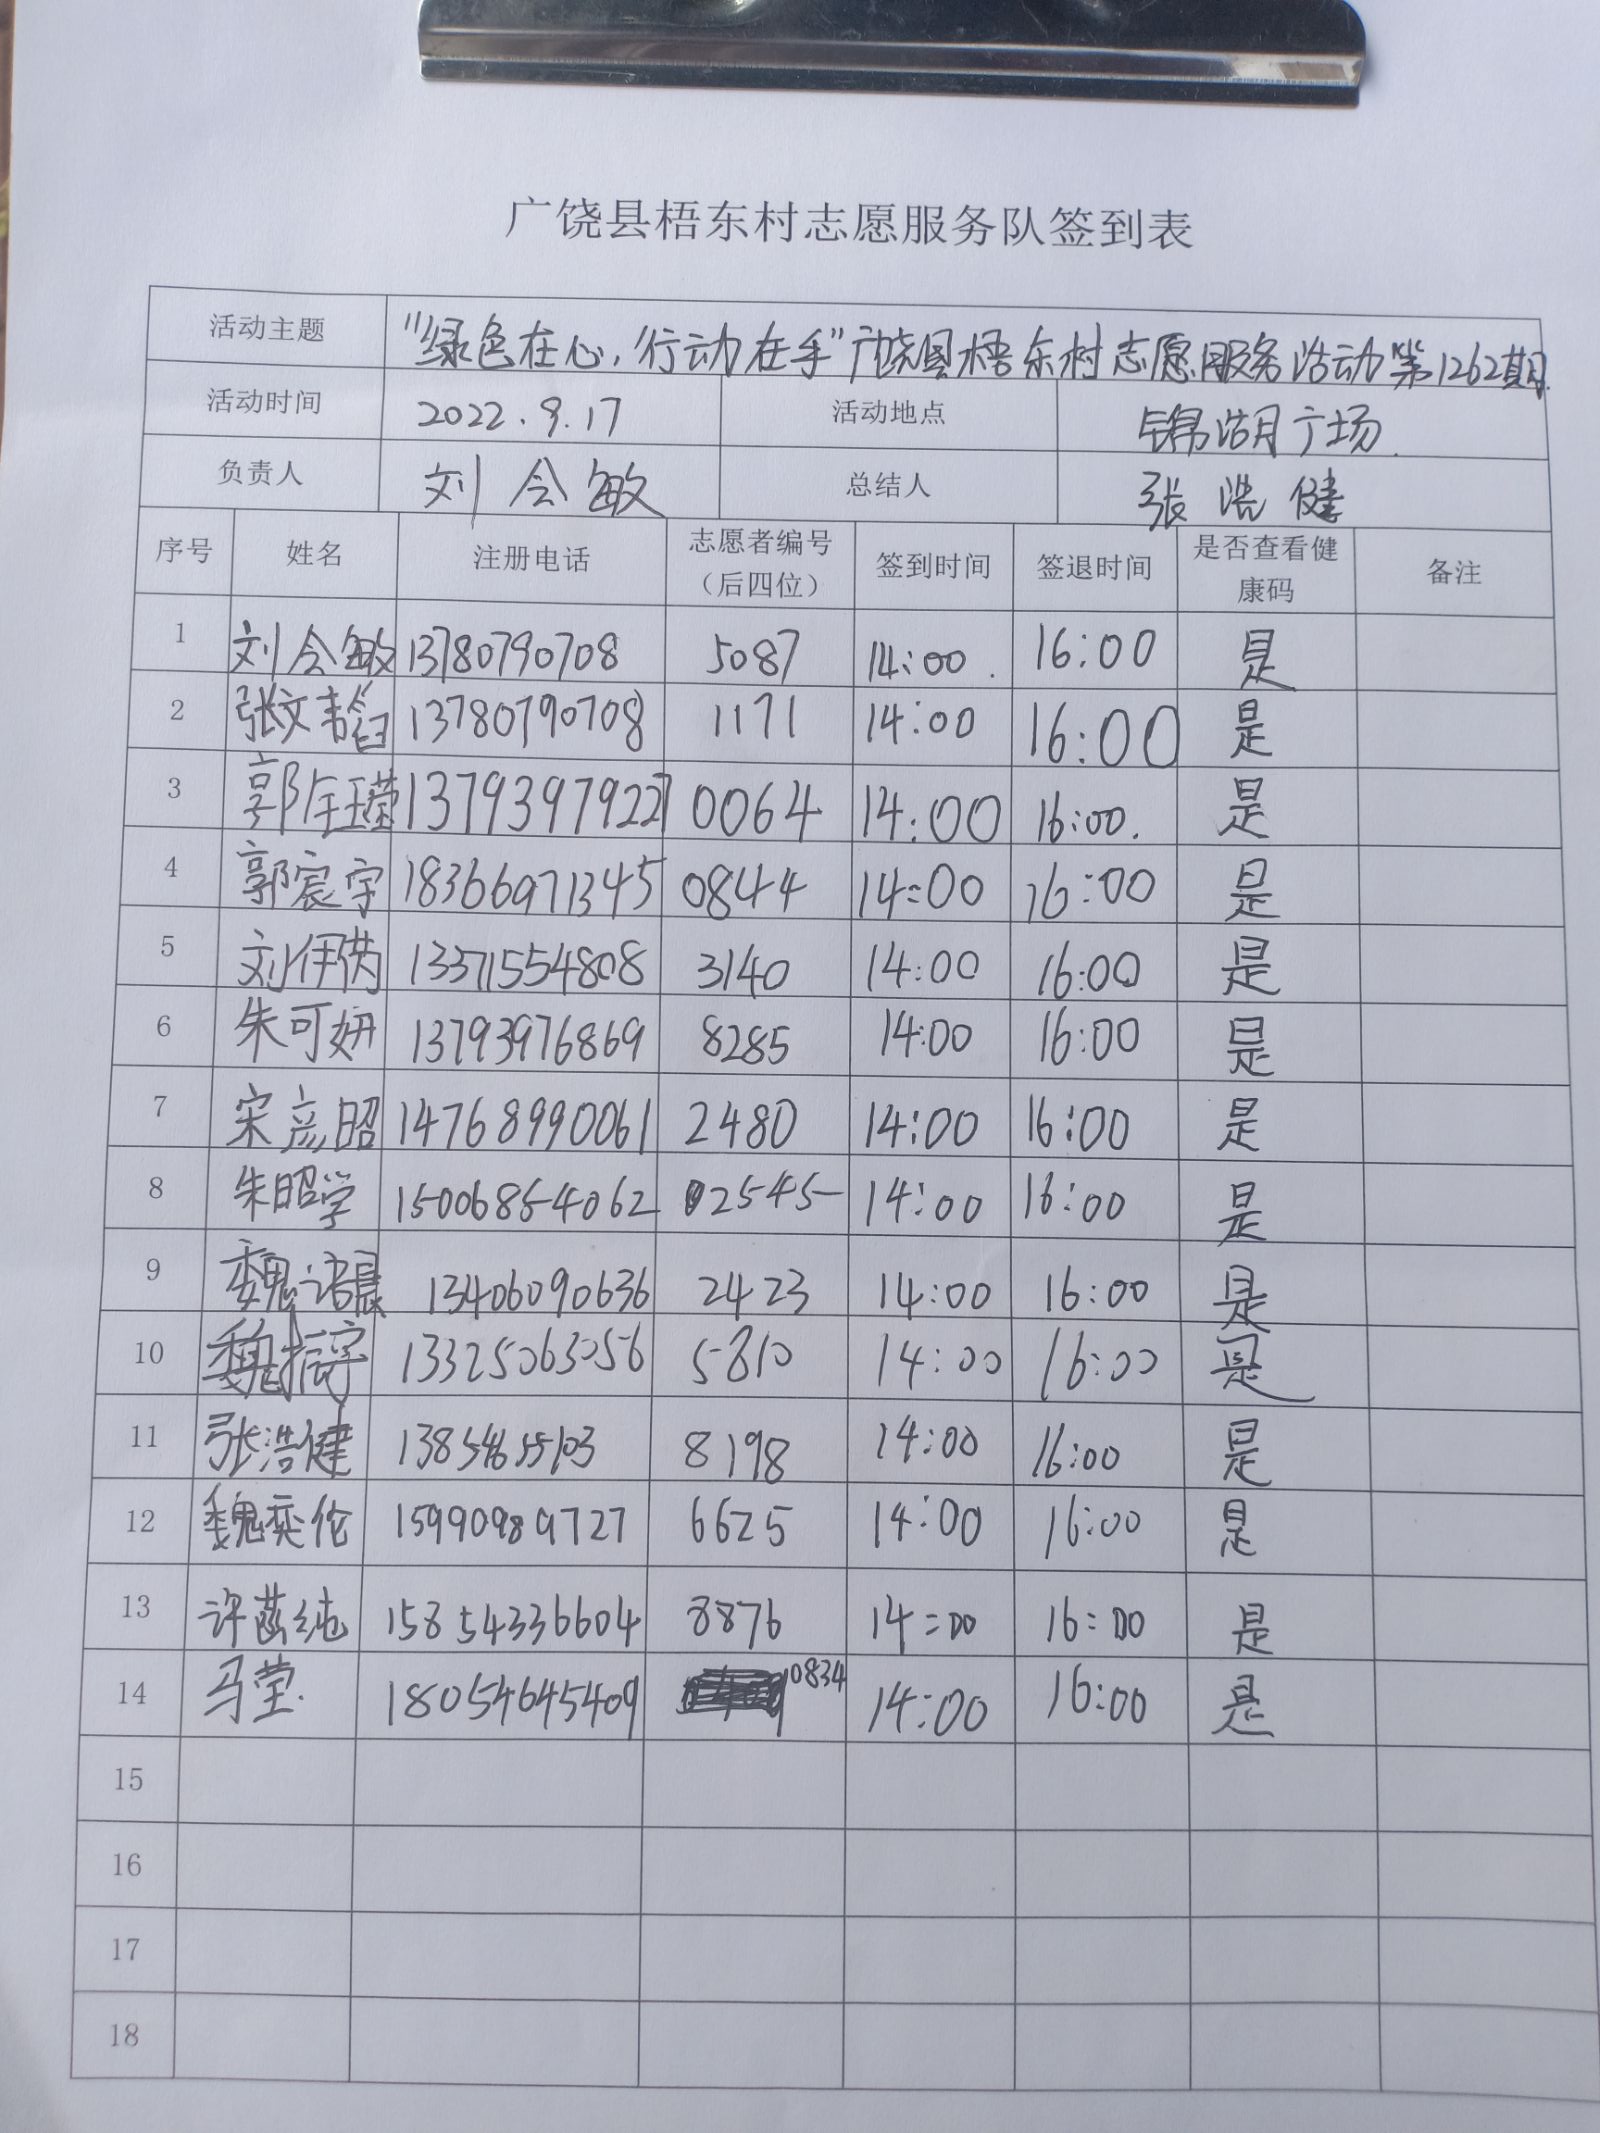 广饶县梧东村志愿服务队签到表
活动主题 "绿色在心,行动在手"广饶县梧东村志愿服务活动第1262期.
活动时间 2022.9.17 活动地点 锦湖广场.
负责人 刘会敏 总结人 张浩健
序号 姓名 注册电话 志愿者编号（后四位） 签到时间 签退时间 是否查看健康码 备注
1 刘会敏 13780790708 5087 14:00. 16:00 是
2 张文韬 13780790708 1171 14:00 16:00 是
3 郭 13793979227 0064 14:00 16:00. 是
4 郭宸宇 18366971345 0844 14:00 16:00 是
5 刘伊 13371554808 3140 14:00 16:00 是
6 朱可妍 13793976869 8285 14:00 16:00 是
7 宋彦昭 14768990061 2480 14:00 16:00 是
8 朱昭学 15006854062 2545 14:00 16:00 是
9 魏诺晨 13406090636 2423 14:00 16:00 是
10 魏振宇 13325063056 5810 14:00 16:00 是
11 张浩健 13854655103 8198 14:00 16:00 是
12 魏奕伦 15990989727 6625 14:00 16:00 是
13 许纯 15854336604 8876 14:00 16:00 是
14 马莹. 18054645409 0834 14:00 16:00 是
15
16
17
18